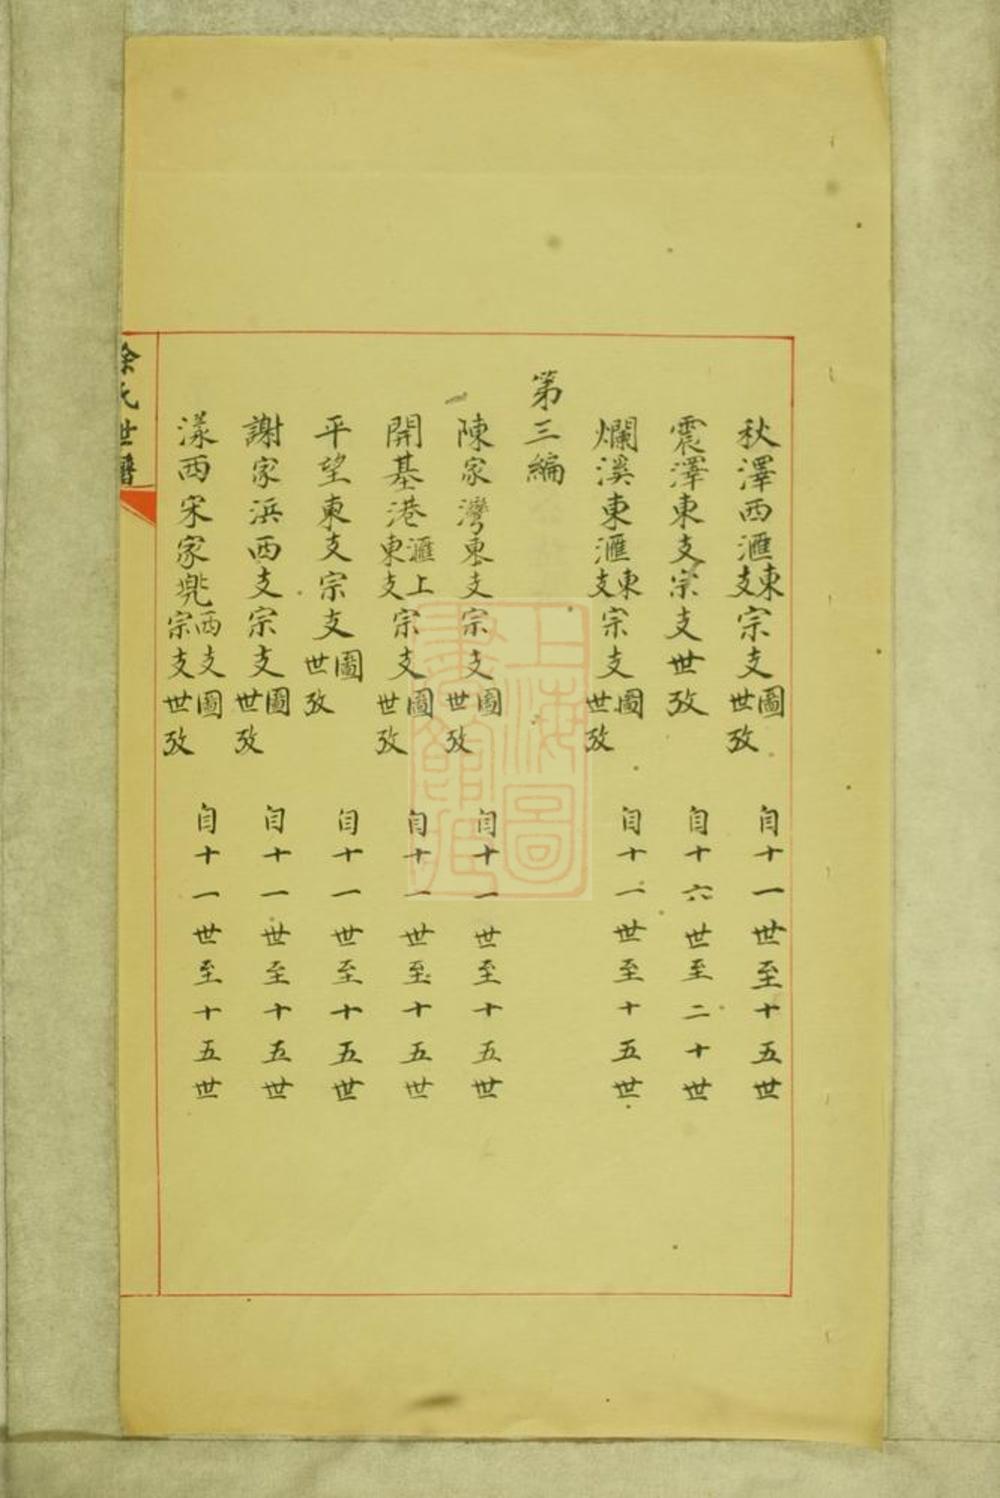 秋澤西滙東支宗支圖世攷 自十一世至十五世
震澤東支宗支世攷 自十六世至二十世
爛溪東滙東支宗支圖世攷 自十一世至十五世
第三編
陳家灣東支宗支圖世攷 自十一世至十五世
開基港滙上東支宗支圖世攷 自十一世至十五世
平望東支宗支圖世攷 自十一世至十五世
謝家浜西支宗支圖世攷 自十一世至十五世
漾西宋家兠西支宗支圖世攷 自十一世至十五世
徐氏世譜
上海圖書館藏